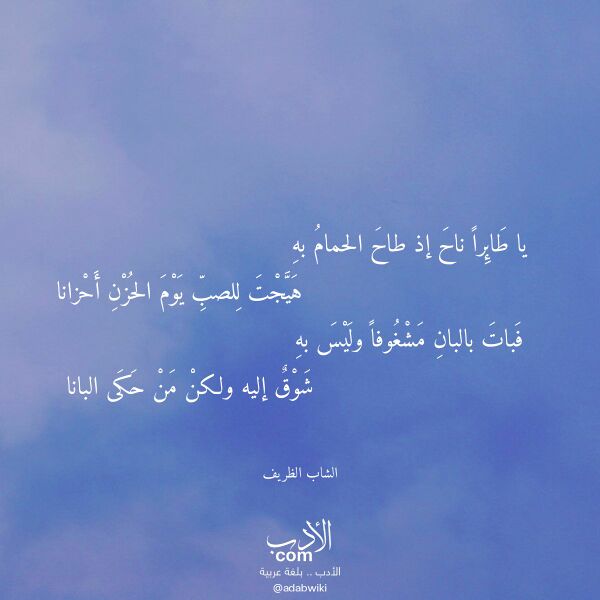 يا طَائِراً ناحَ إذ طاحَ الحمامُ بهِ
هَيَّجْتَ لِلصبِّ يَوْمَ الحُزْنِ أَحْزانا
فَباتَ بالبانِ مَشْغُوفاً ولَيْسَ بهِ
شَوْقٌ إليه ولكنْ مَنْ حَكَى البانا
الشاب الظريف
الأدب
com
الأدب .. بلغة عربية
@adabwiki